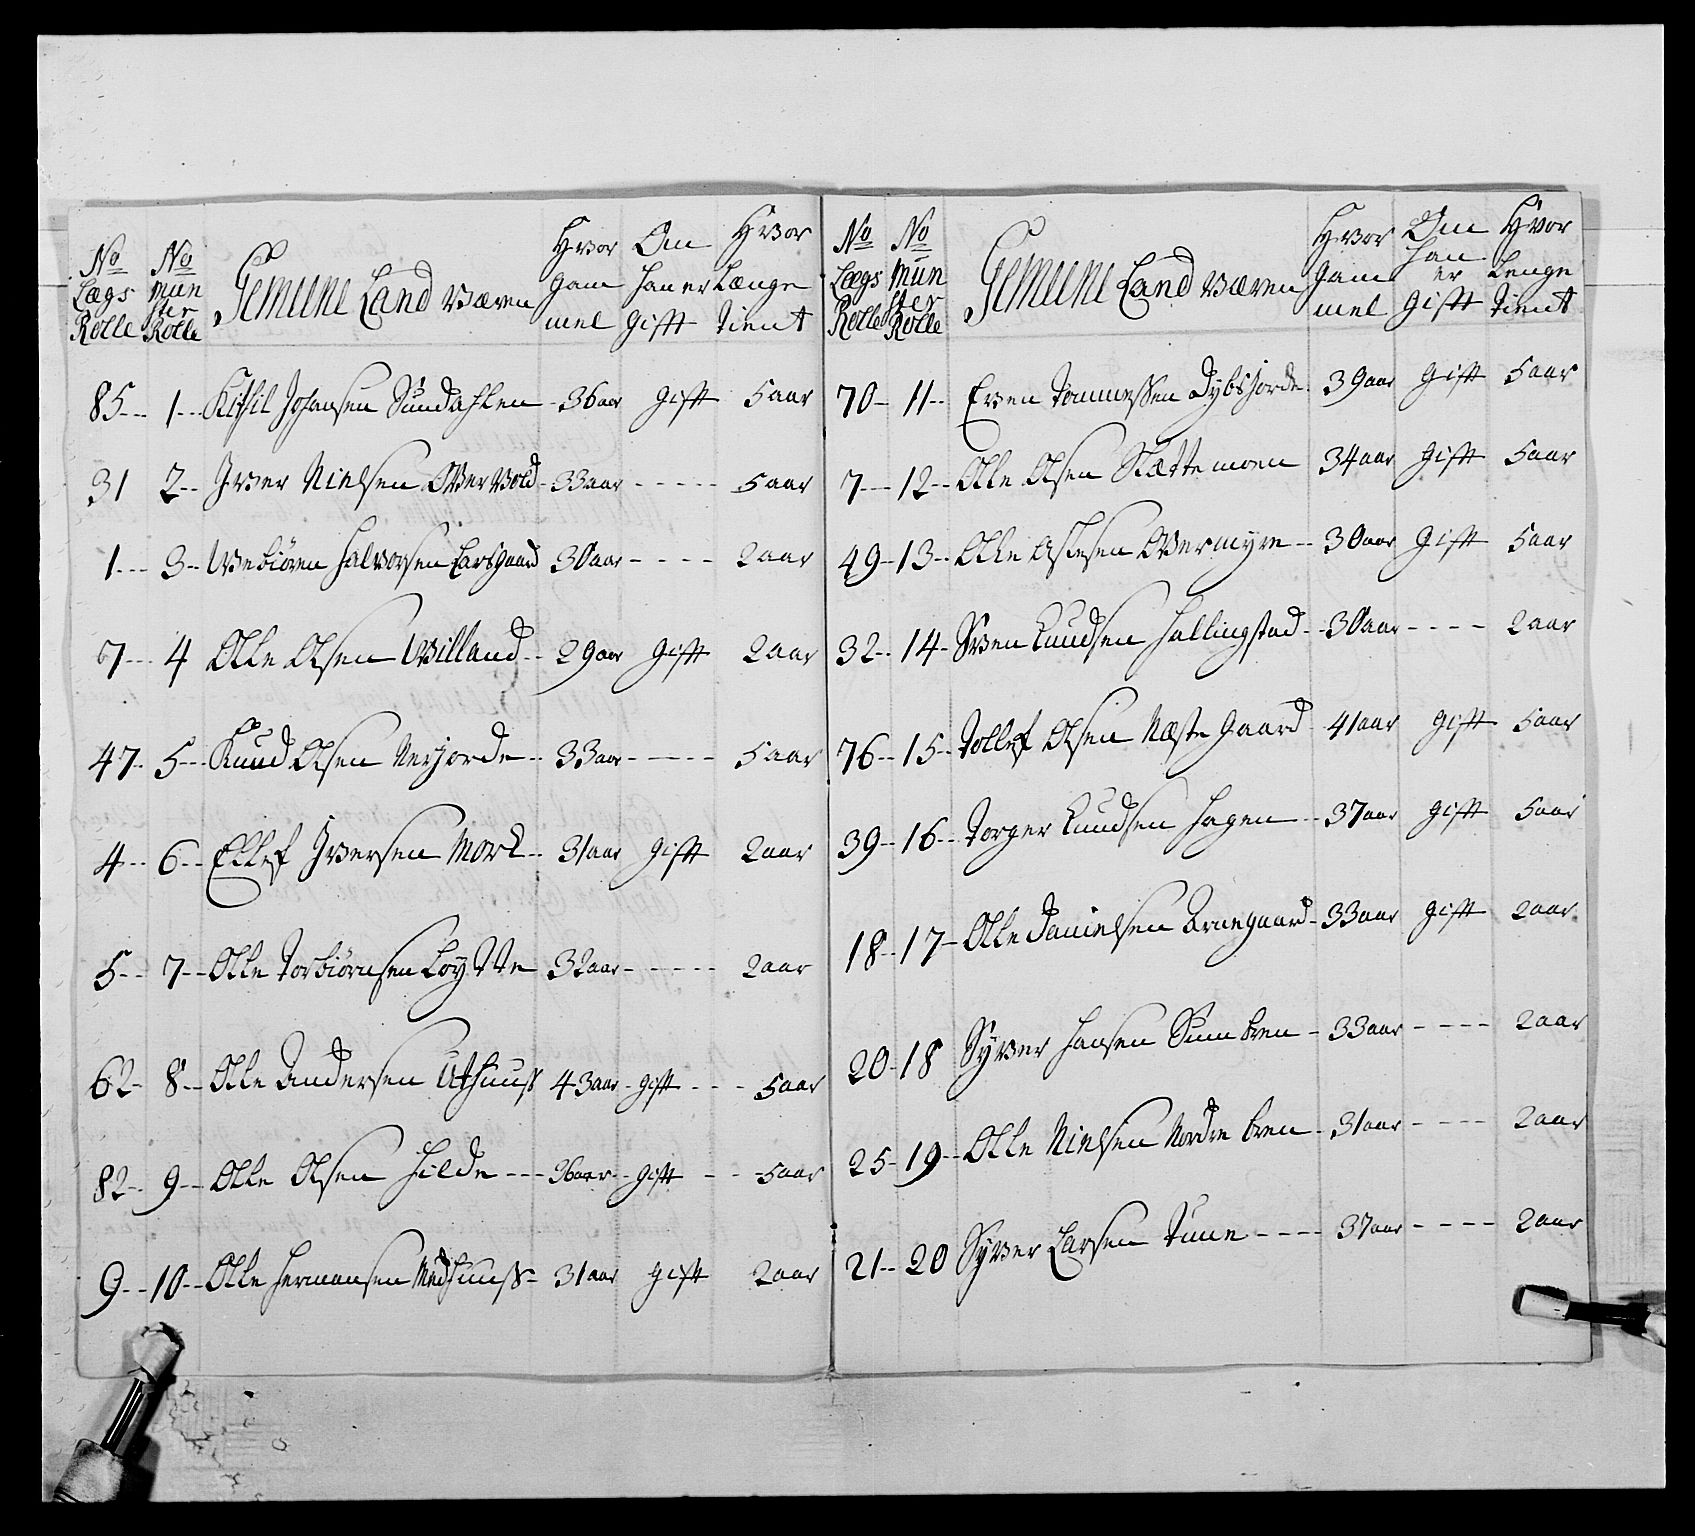 No Lægs Rolle | No Mun ster Rolle | Gemeene Land Værn | Hvor gam mel | Om han er gift | Hvor Længe tient
85 1 Kittil Johansen Sundahlen 36 aar gift 5 aar
31 2 Iver Nielsen OverVold 33 aar 5 aar
1 3 Vebiøren Halvorsen Larsgaard 30 aar 2 aar
7 4 Olle Olsen Villand 29 aar gift 2 aar
47 5 Knud Olsen Nerjorde 33 aar 5 aar
4 6 Ellef Iversen Mork 31 aar gift 2 aar
5 7 Olle Torbiørnsen Løytte 32 aar 2 aar
62 8 Olle Andersen Uthuuss 43 aar gift 5 aar
82 9 Olle Olsen Hilde 36 aar gift 5 aar
9 10 Olle Hermansen Medhuuss 31 aar gift 2 aar
No Lægs Rolle | No Mun ster Rolle | Gemeene Land Væren | Hvor gam mel | Om han er gift | Hvor Lenge tient
70 11 Even Tommessen Dybsjorde 39 aar gift 5 aar
7 12 Olle Olsen Slættemoen 34 aar gift 5 aar
49 13 Olle Aslesen Overmyre 30 aar gift 5 aar
32 14 Sven Knudsen Hallingstad 30 aar 2 aar
76 15 Tollef Olsen Næstegaard 41 aar gift 5 aar
39 16 Torger Knudsen Hagen 37 aar gift 5 aar
18 17 Olle Danielsen Bruegaard 33 aar gift 2 aar
20 18 Syver Hansen Sumbren 33 aar 2 aar
25 19 Olle Nielsen Nordre Bren 31 aar 2 aar
21 20 Syver Larsen Tune 37 aar 2 aar